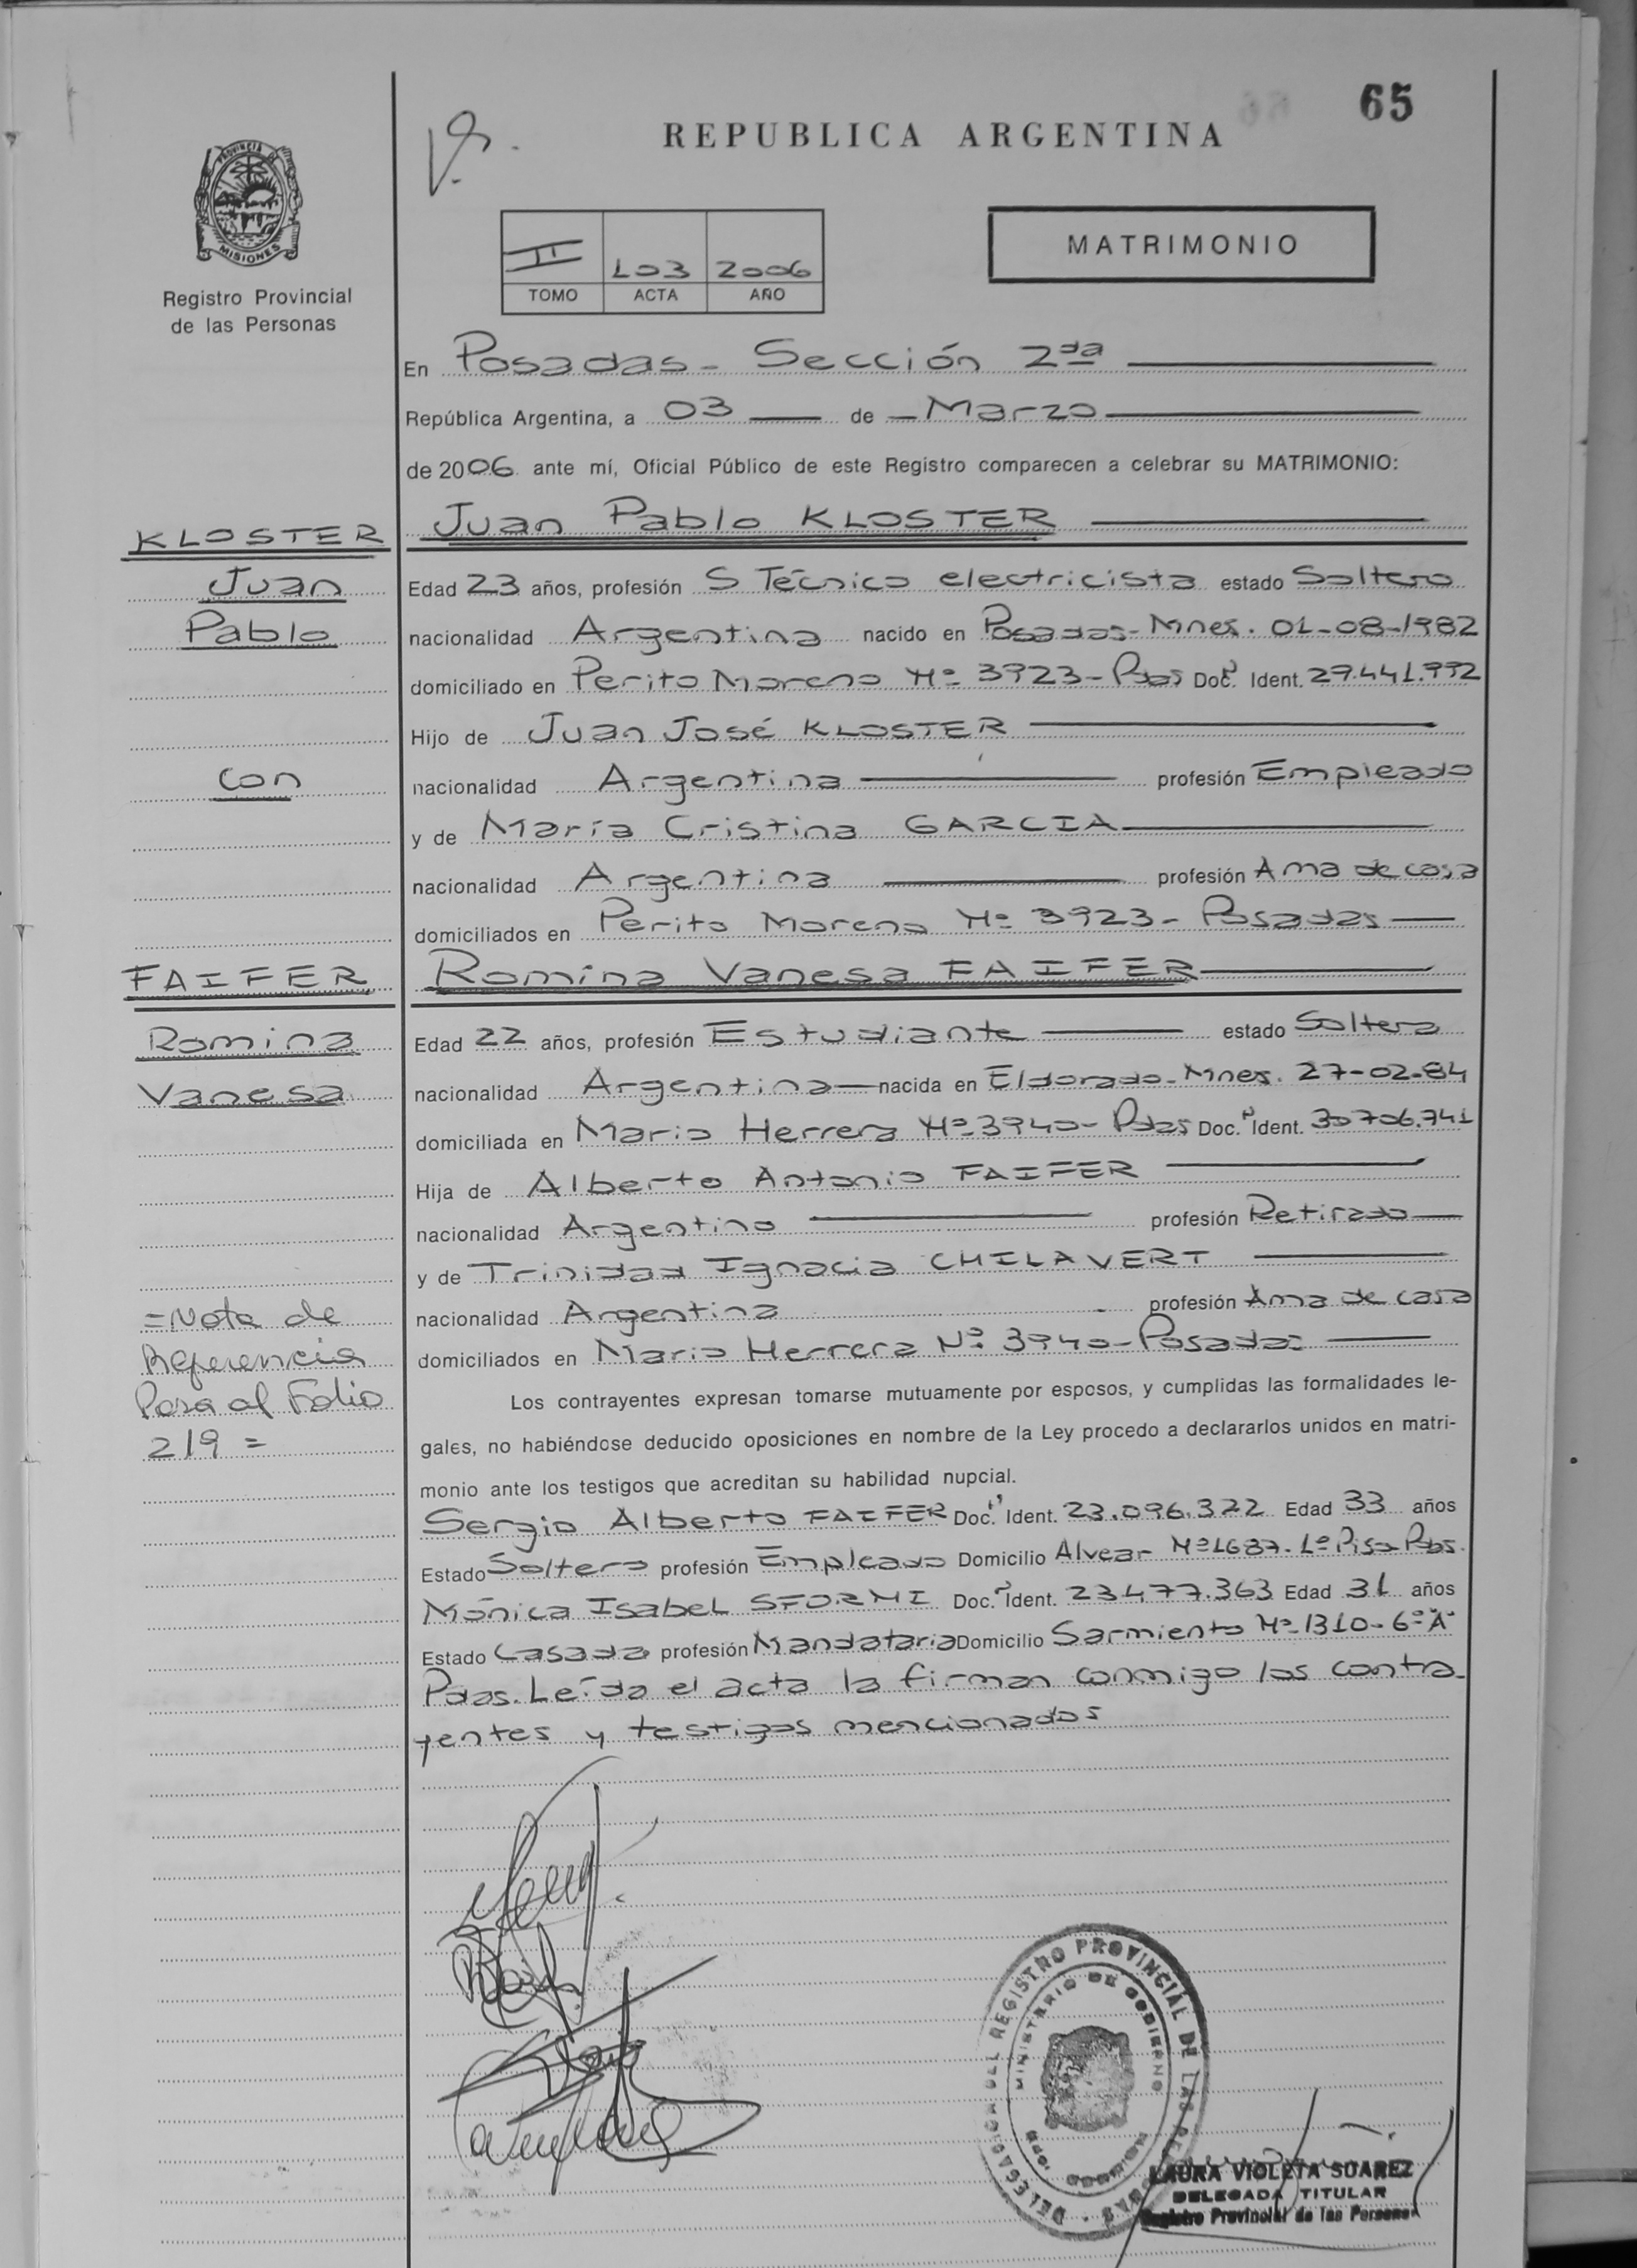 65
REPUBLICA ARGENTINA
PROVINCIA DE
MISIONES
Registro Provincial
de las Personas
MATRIMONIO
II 103 2006
TOMO ACTA AÑO
En Posadas - Sección 2da
República Argentina, a 03 de Marzo
de 2006 ante mí, Oficial Público de este Registro comparecen a celebrar su MATRIMONIO:
KLOSTER
Juan
Pablo
con
FAIFER
Romina
Vanesa
=Nota de
Referencia
Pasa al Folio
219=
Juan Pablo KLOSTER
Edad 23 años, profesión S Técnico electricista estado Soltero
nacionalidad Argentina nacido en Posadas-Mnes. 01-08-1982
domiciliado en Perito Moreno Nº 3923-Pdas Doc. Ident. 29.441.992
Hijo de Juan José KLOSTER
nacionalidad Argentina profesión Empleado
y de María Cristina GARCIA
nacionalidad Argentina profesión Ama de casa
domiciliados en Perito Moreno Nº 3923- Posadas
Romina Vanesa FAIFER
Edad 22 años, profesión Estudiante estado Soltera
nacionalidad Argentina nacida en Eldorado-Mnes. 27-02-84
domiciliada en Mario Herrera Nº 3940- Pdas Doc. Ident. 30706.741
Hija de Alberto Antonio FAIFER
nacionalidad Argentino profesión Retirado
y de Trinidad Ignacia CHILAVERT
nacionalidad Argentina profesión Ama de casa
domiciliados en Mario Herrera Nº 3940-Posadas
Los contrayentes expresan tomarse mutuamente por esposos, y cumplidas las formalidades le-
gales, no habiéndose deducido oposiciones en nombre de la Ley procedo a declararlos unidos en matri-
monio ante los testigos que acreditan su habilidad nupcial.
Sergio Alberto FAIFER Doc. Ident. 23.096.322 Edad 33 años
Estado Soltero profesión Empleado Domicilio Alvear Nº 1687. 1º Piso Pdas.
Mónica Isabel SFORNI Doc. Ident. 23477.363 Edad 31 años
Estado Casada profesión Mandataria Domicilio Sarmiento Nº 1310-6º"A"
Pdas. Leída el acta la firman conmigo los contra-
yentes y testigos mencionados
DELEGACION DEL REGISTRO PROVINCIAL DE LAS PERSONAS
MINISTERIO DE GOBIERNO
LAURA VIOLETA SUAREZ
DELEGADA TITULAR
Registro Provincial de las Personas